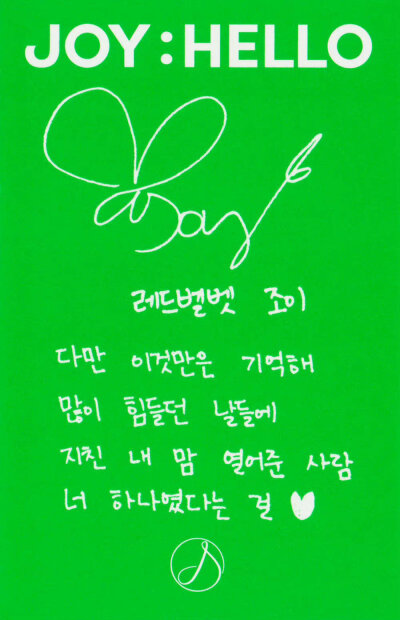 JOY : HELLO
Joy
레드벨벳 조이
다만 이것만은 기억해
많이 힘들던 날들에
지친 내 맘 열어준 사람
너 하나였다는 걸